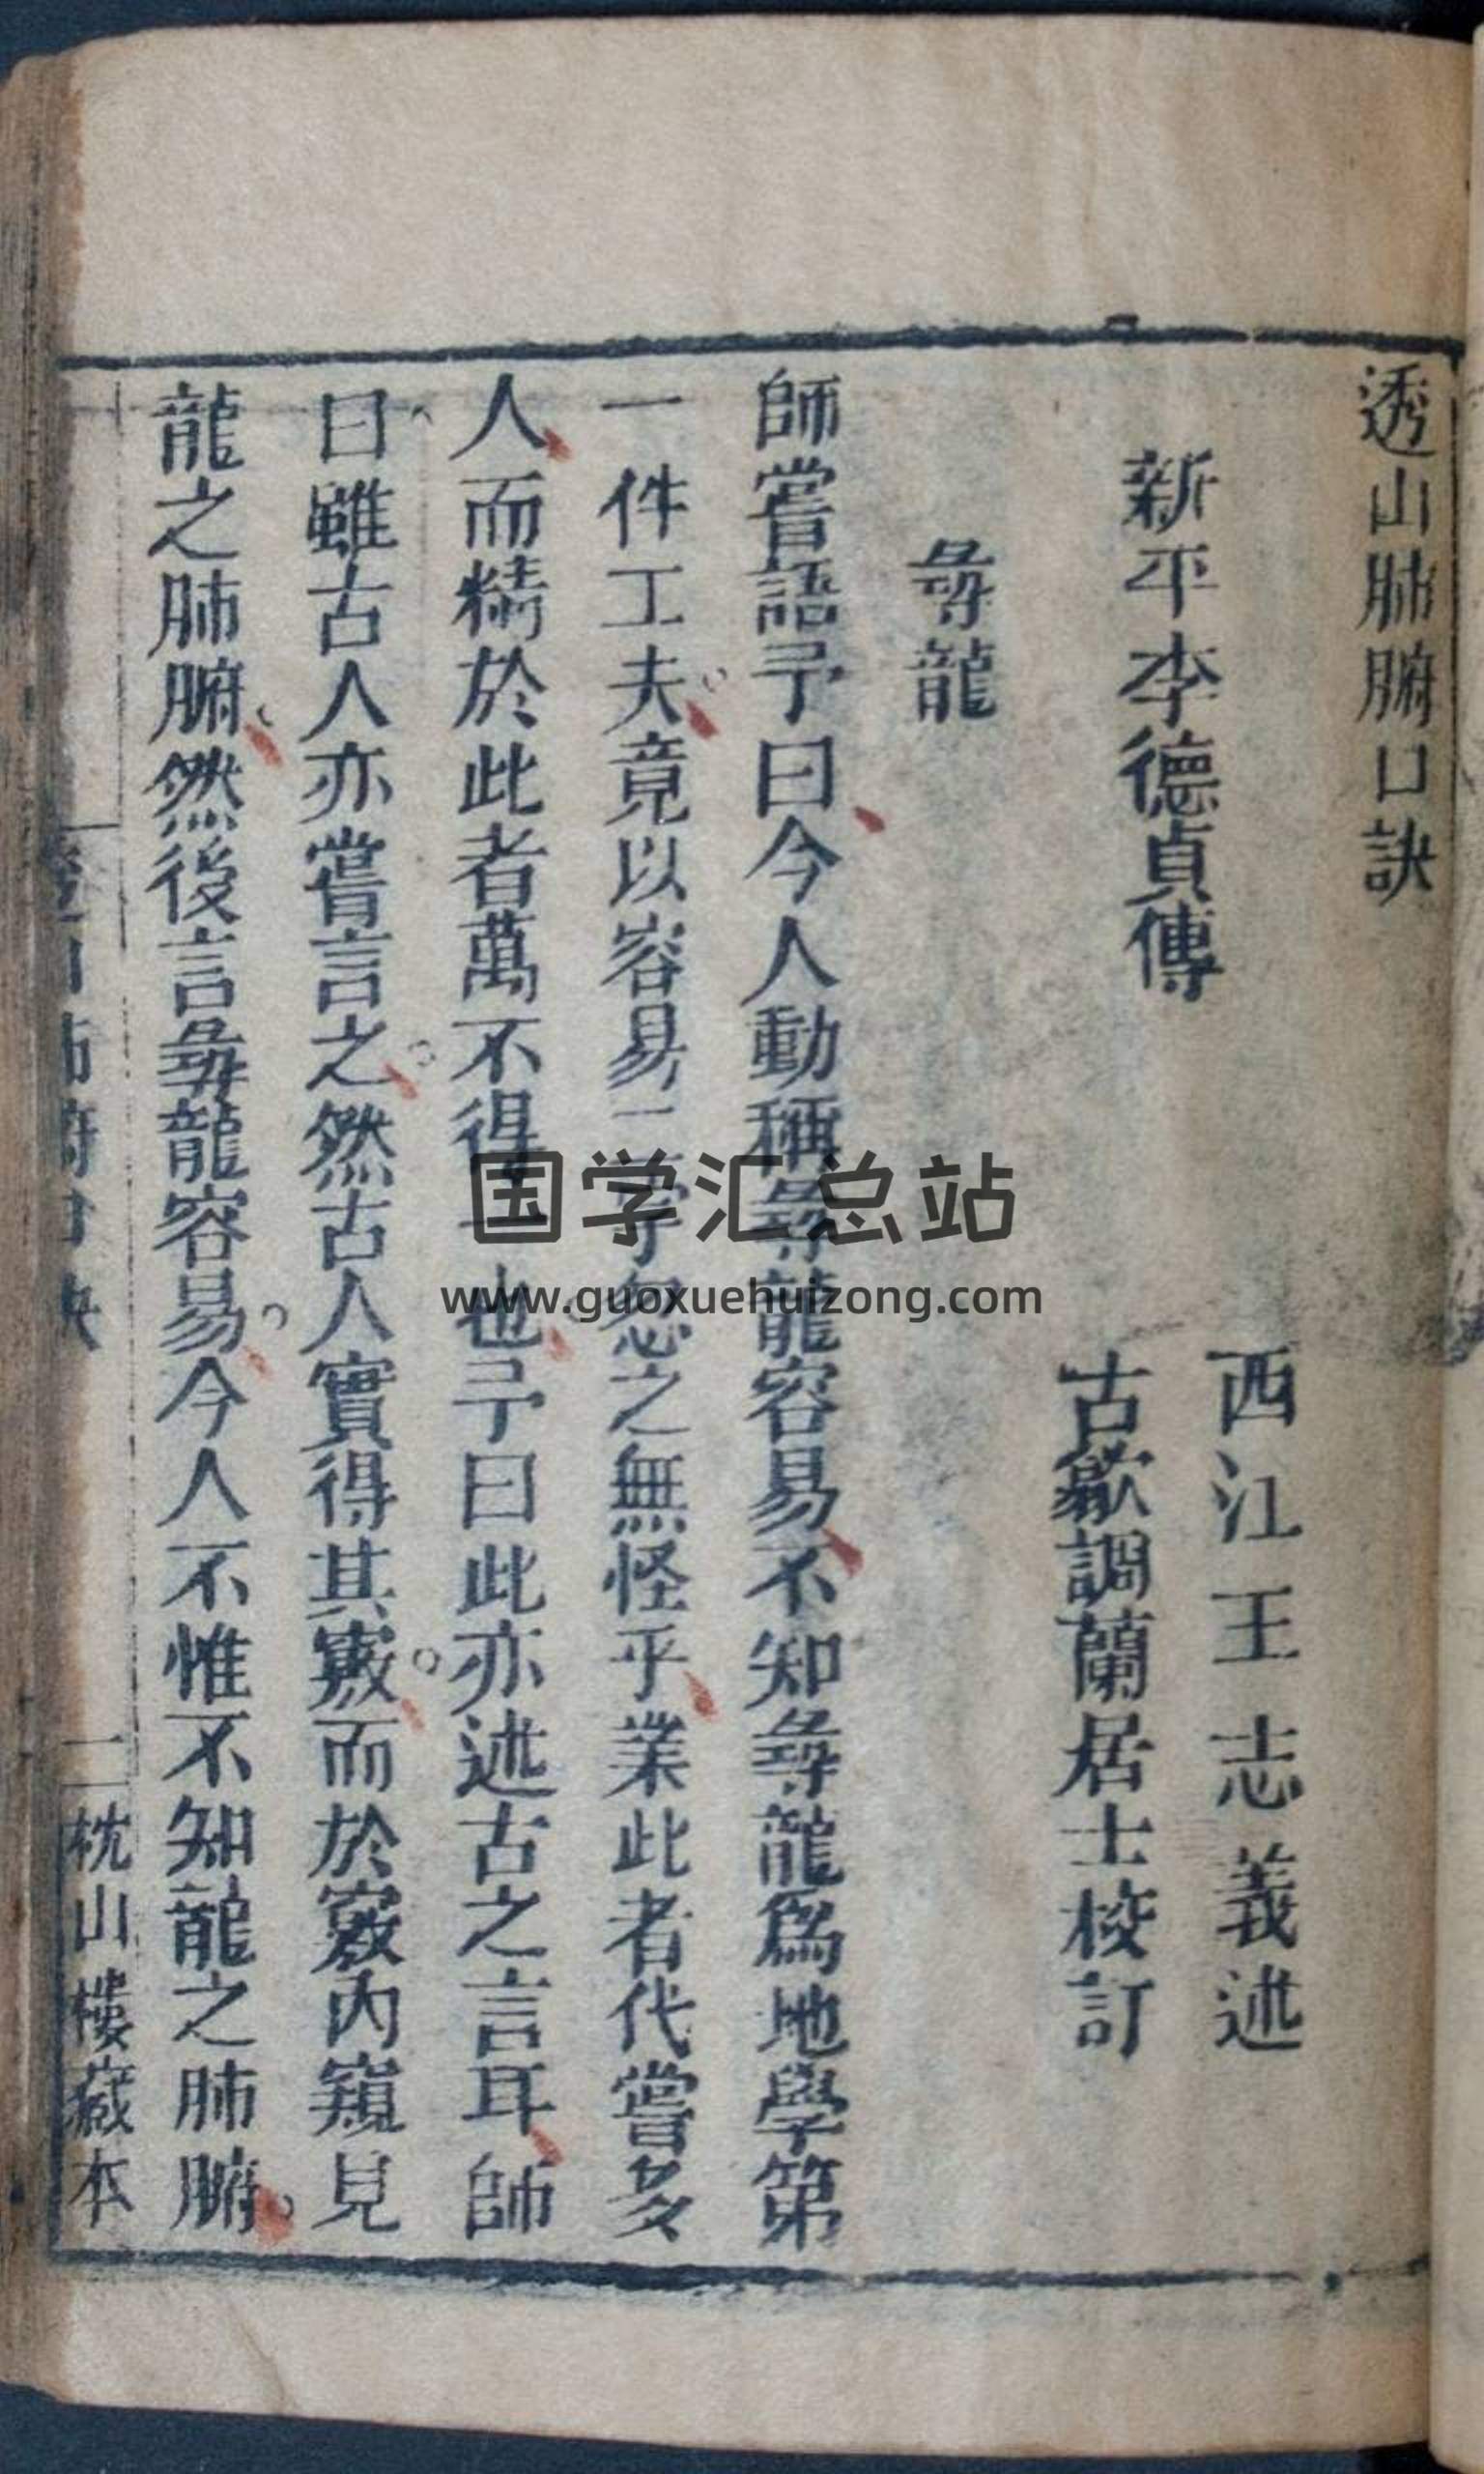 透山肺腑口訣
西江王志義述
新平李德貞傳
古歙調蘭居士校訂
尋龍
師嘗語予曰今人動稱尋龍容易不知尋龍爲地學第
一件工夫竟以容易二字忽之無怪乎業此者代嘗多
人而精於此者萬不得一也予曰此亦述古之言耳師
曰雖古人亦嘗言之然古人實得其竅而於竅內窺見
龍之肺腑然後言尋龍容易今人不惟不知龍之肺腑
透山肺腑口訣
二
枕山樓藏本
国学汇总站
www.guoxuehuizong.com